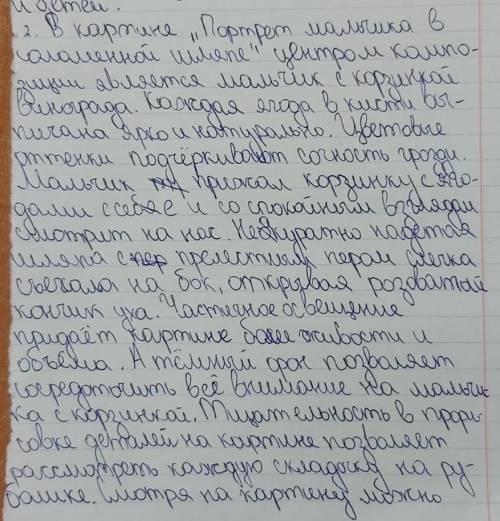 и детей.
2. В картине "Портрет мальчика в
соломенной шляпе" центром компо-
зиции является мальчик с корзинкой
винограда. Каждая ягода в кисти вы-
писана ярко и натурально. Цветовые
оттенки подчёркивают сочность грозди.
Мальчик прижал корзинку с яго-
дами к себе и со спокойным взглядом
смотрит на нас. Неаккуратно надетая
шляпа с прелестным пером слегка
съехала на бок, открывая розоватый
кончик уха. Частичное освещение
придаёт картине более живости и
объёма. А тёмный фон позволяет
сосредоточить всё внимание на мальчи-
ка с корзинкой. Тщательность в прори-
совке деталей на картине позволяет
рассмотреть каждую складочку на ру-
башке. Смотря на картину можно